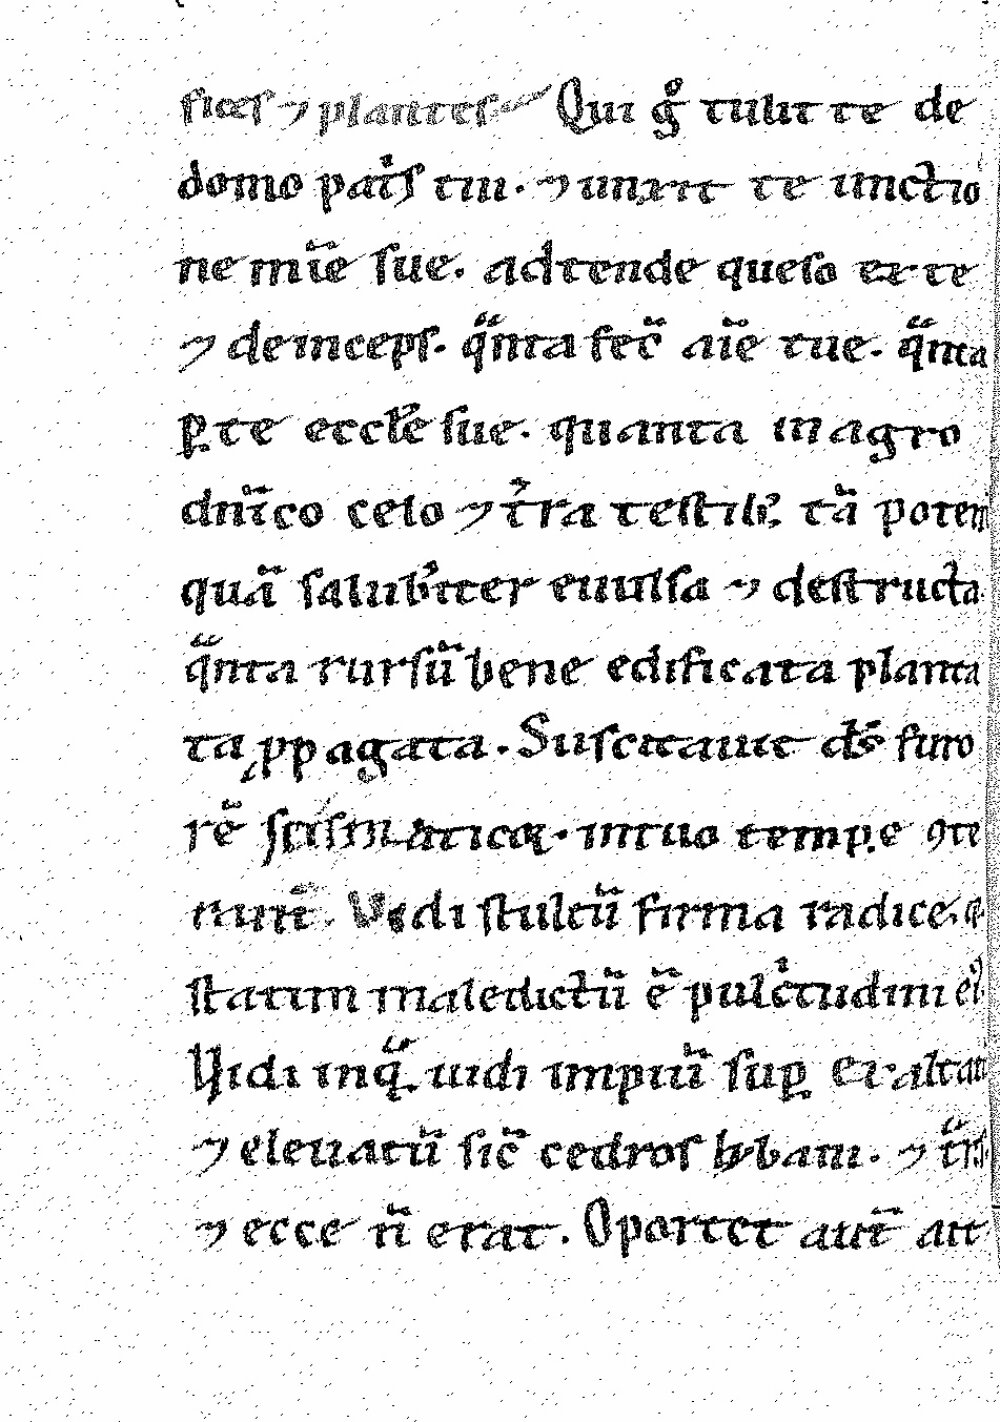 fices ⁊ plantes. Qui gͦ tulit te de
domo pat͛s tui. ⁊ unxit te unctio
ne mīe sue. adtende queso ex te
⁊ deinceps. qᷓnta fec̄ aīe tue. qᷓnta
ꝑ te eccl̄e sue. quanta in agro
dn̄ico celo ⁊ t͛ra testib; tā poten
quā salub͛iter euulsa ⁊ destructa
qᷓnta rursū bene edificata planta
ta ꝓpagata. Suscitauit ds̄ furo
rē scismaticoꝝ. in tuo tempꝑe ꝯti
nuit. Vidi stultū firma radice. ⁊
statim maledictū ē pulc͛tudini ei᷒
Vidi inqᷓ. uidi impiū suꝑ exaltatū
⁊ eleuatū sic̄ cedros lybani. ⁊ t͛ns
⁊ ecce n̄ erat. Oportet aut̄ att